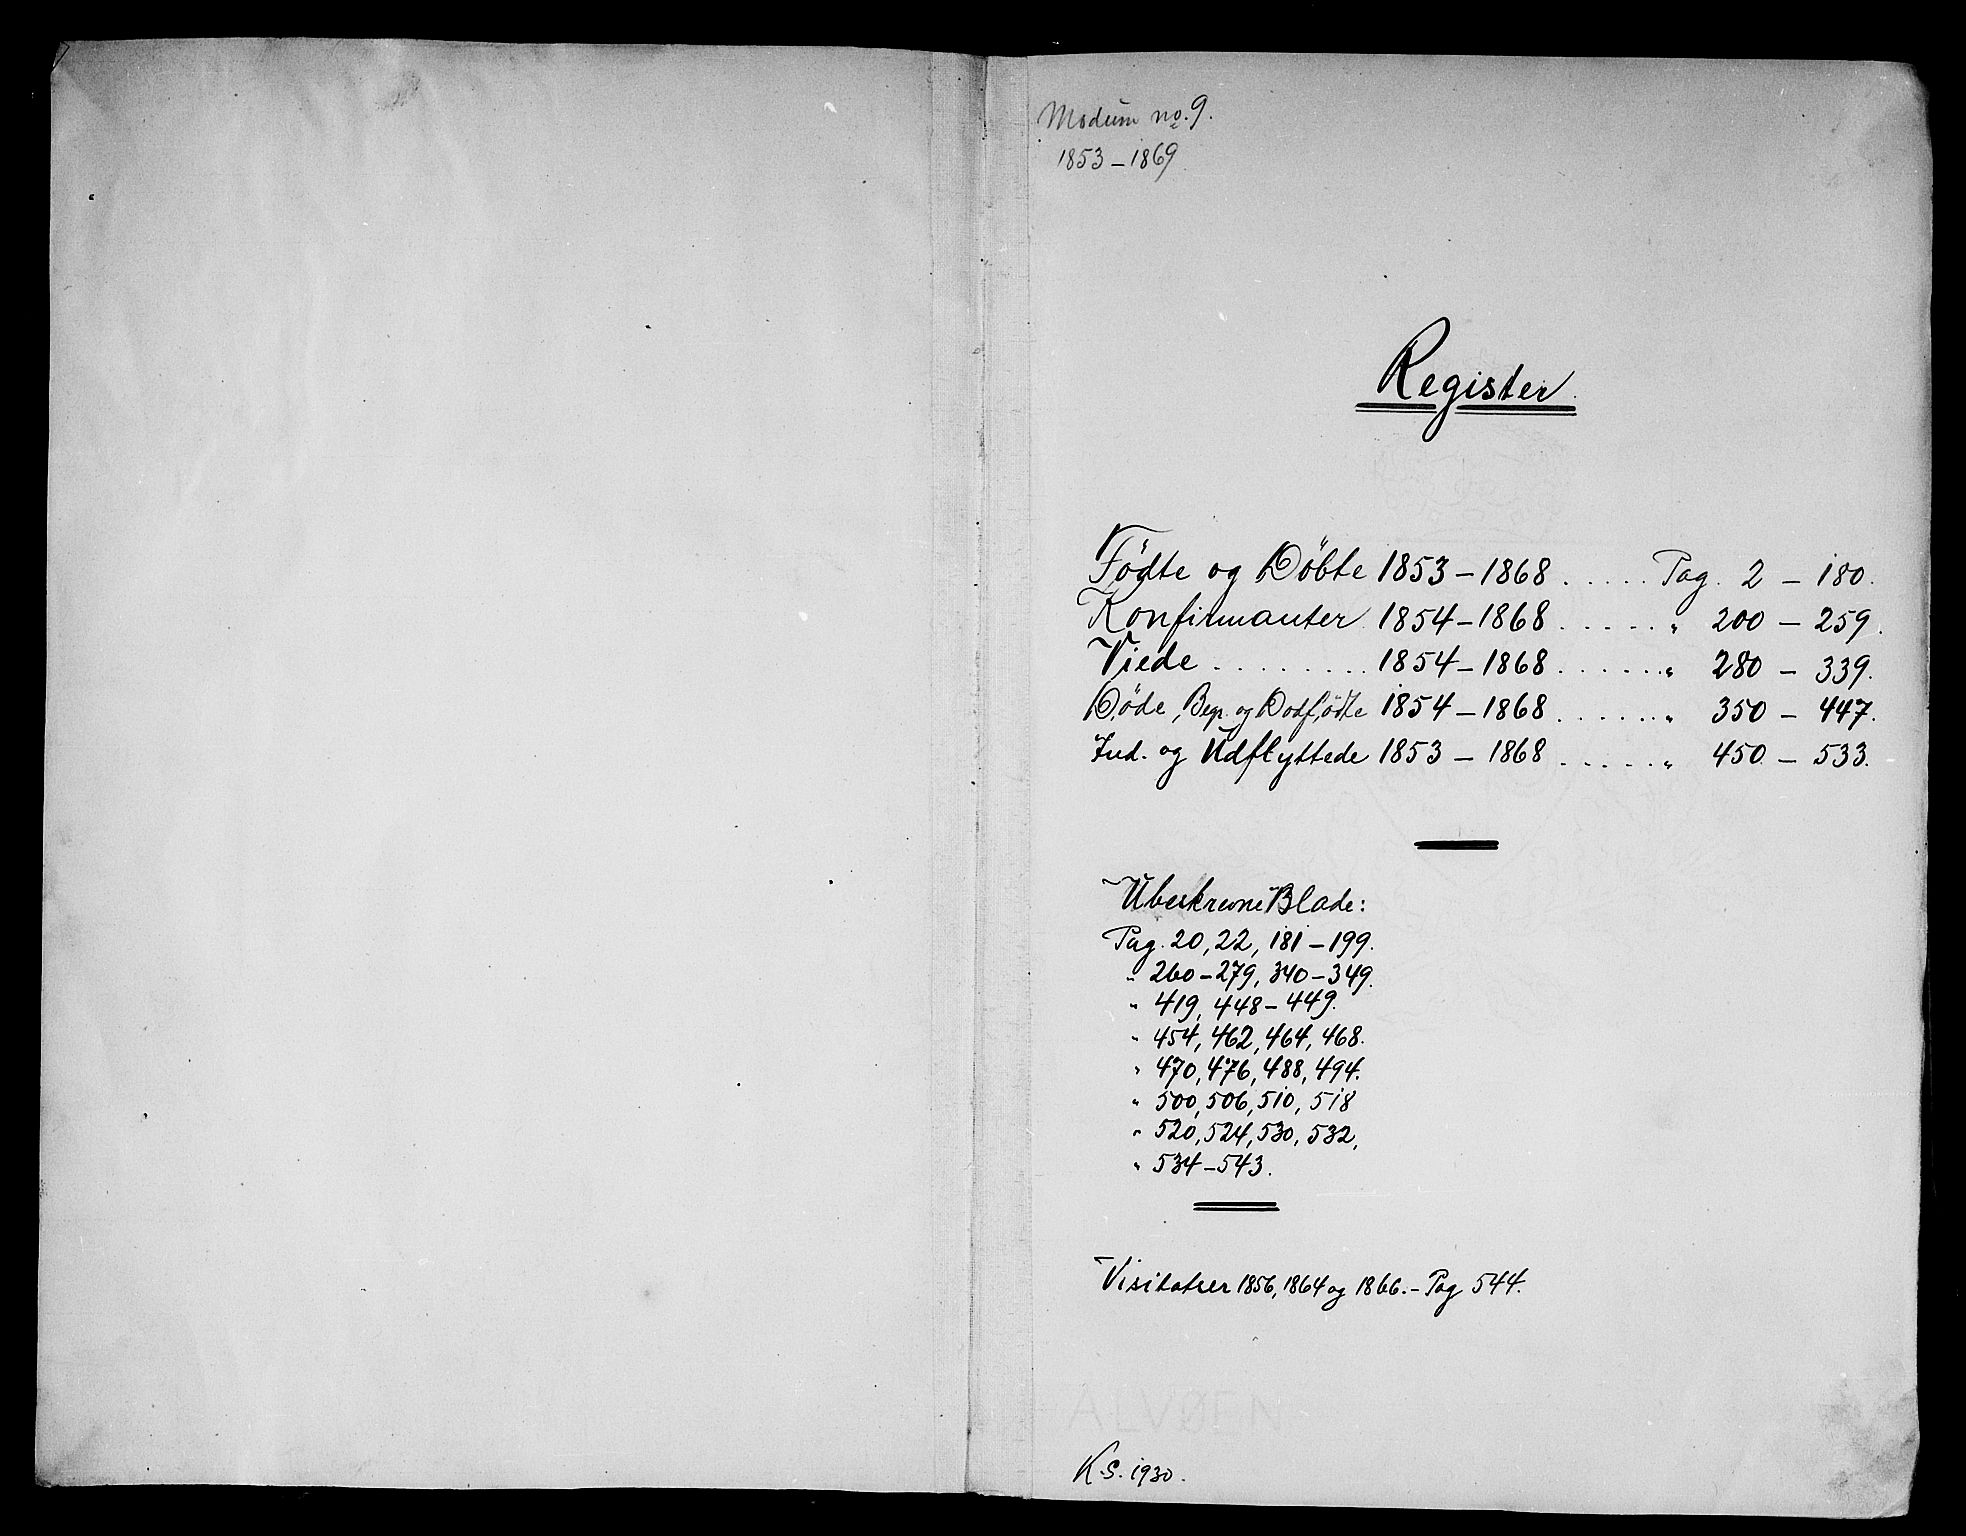 Modum no. 9.
1853 – 1869
Register.
Födte og Döbte 1853 – 1868 ..... Pag. 2 – 180.
Konfirmanter 1854 – 1868 ..... " 200 – 259.
Viede ........ 1854 – 1868 ...... " 280 – 339.
Döde, Begr. og Dödfödte 1854 – 1868 ...... " 350 – 447.
Ind. og Udflyttede 1853 – 1868 ..... " 450 – 533.
Ubeskrevne Blade:
Pag. 20, 22, 181 – 199.
" 260 – 279, 340 – 349.
" 419, 448 – 449.
" 454, 462, 464, 468.
" 470, 476, 488, 494.
" 500, 506, 510, 518
" 520, 524, 530, 532,
" 534 – 543.
Visitatser 1856, 1864 og 1866. – Pag 544.
ALVØEN
K.S. 1930.